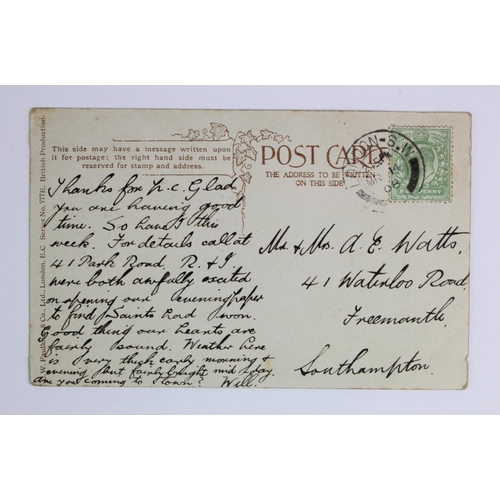 This side may have a message written upon
it for postage; the right hand side must be
reserved for stamp and address.
POST CARD
THE ADDRESS TO BE WRITTEN
ON THIS SIDE
Thanks for p.c. Glad
you are having good
time. So have I this
week. For details call at
41 Park Road. R. & I.
were both awfully excited
on opening our evening paper
to find Saints had won.
Good thing our hearts are
fairly sound. Weather here
is very thick early morning &
evening but fairly bright mid day.
Are you coming to town? Will.
Mr & Mrs. A. E. Watts,
41 Waterloo Road,
Freemantle,
Southampton.
LONDON-S.W.
08
PENNY
& Co., Ltd., London, E.C. Series No. 777E. British Production.